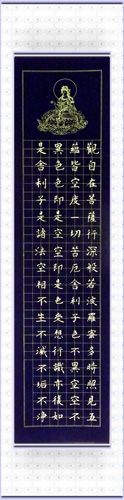 觀自在菩薩行深般若波羅蜜多時照見五
蘊皆空度一切苦厄舍利子色不異空空不
異色色即是空空即是色受想行識亦復如
是舍利子是諸法空相不生不滅不垢不淨